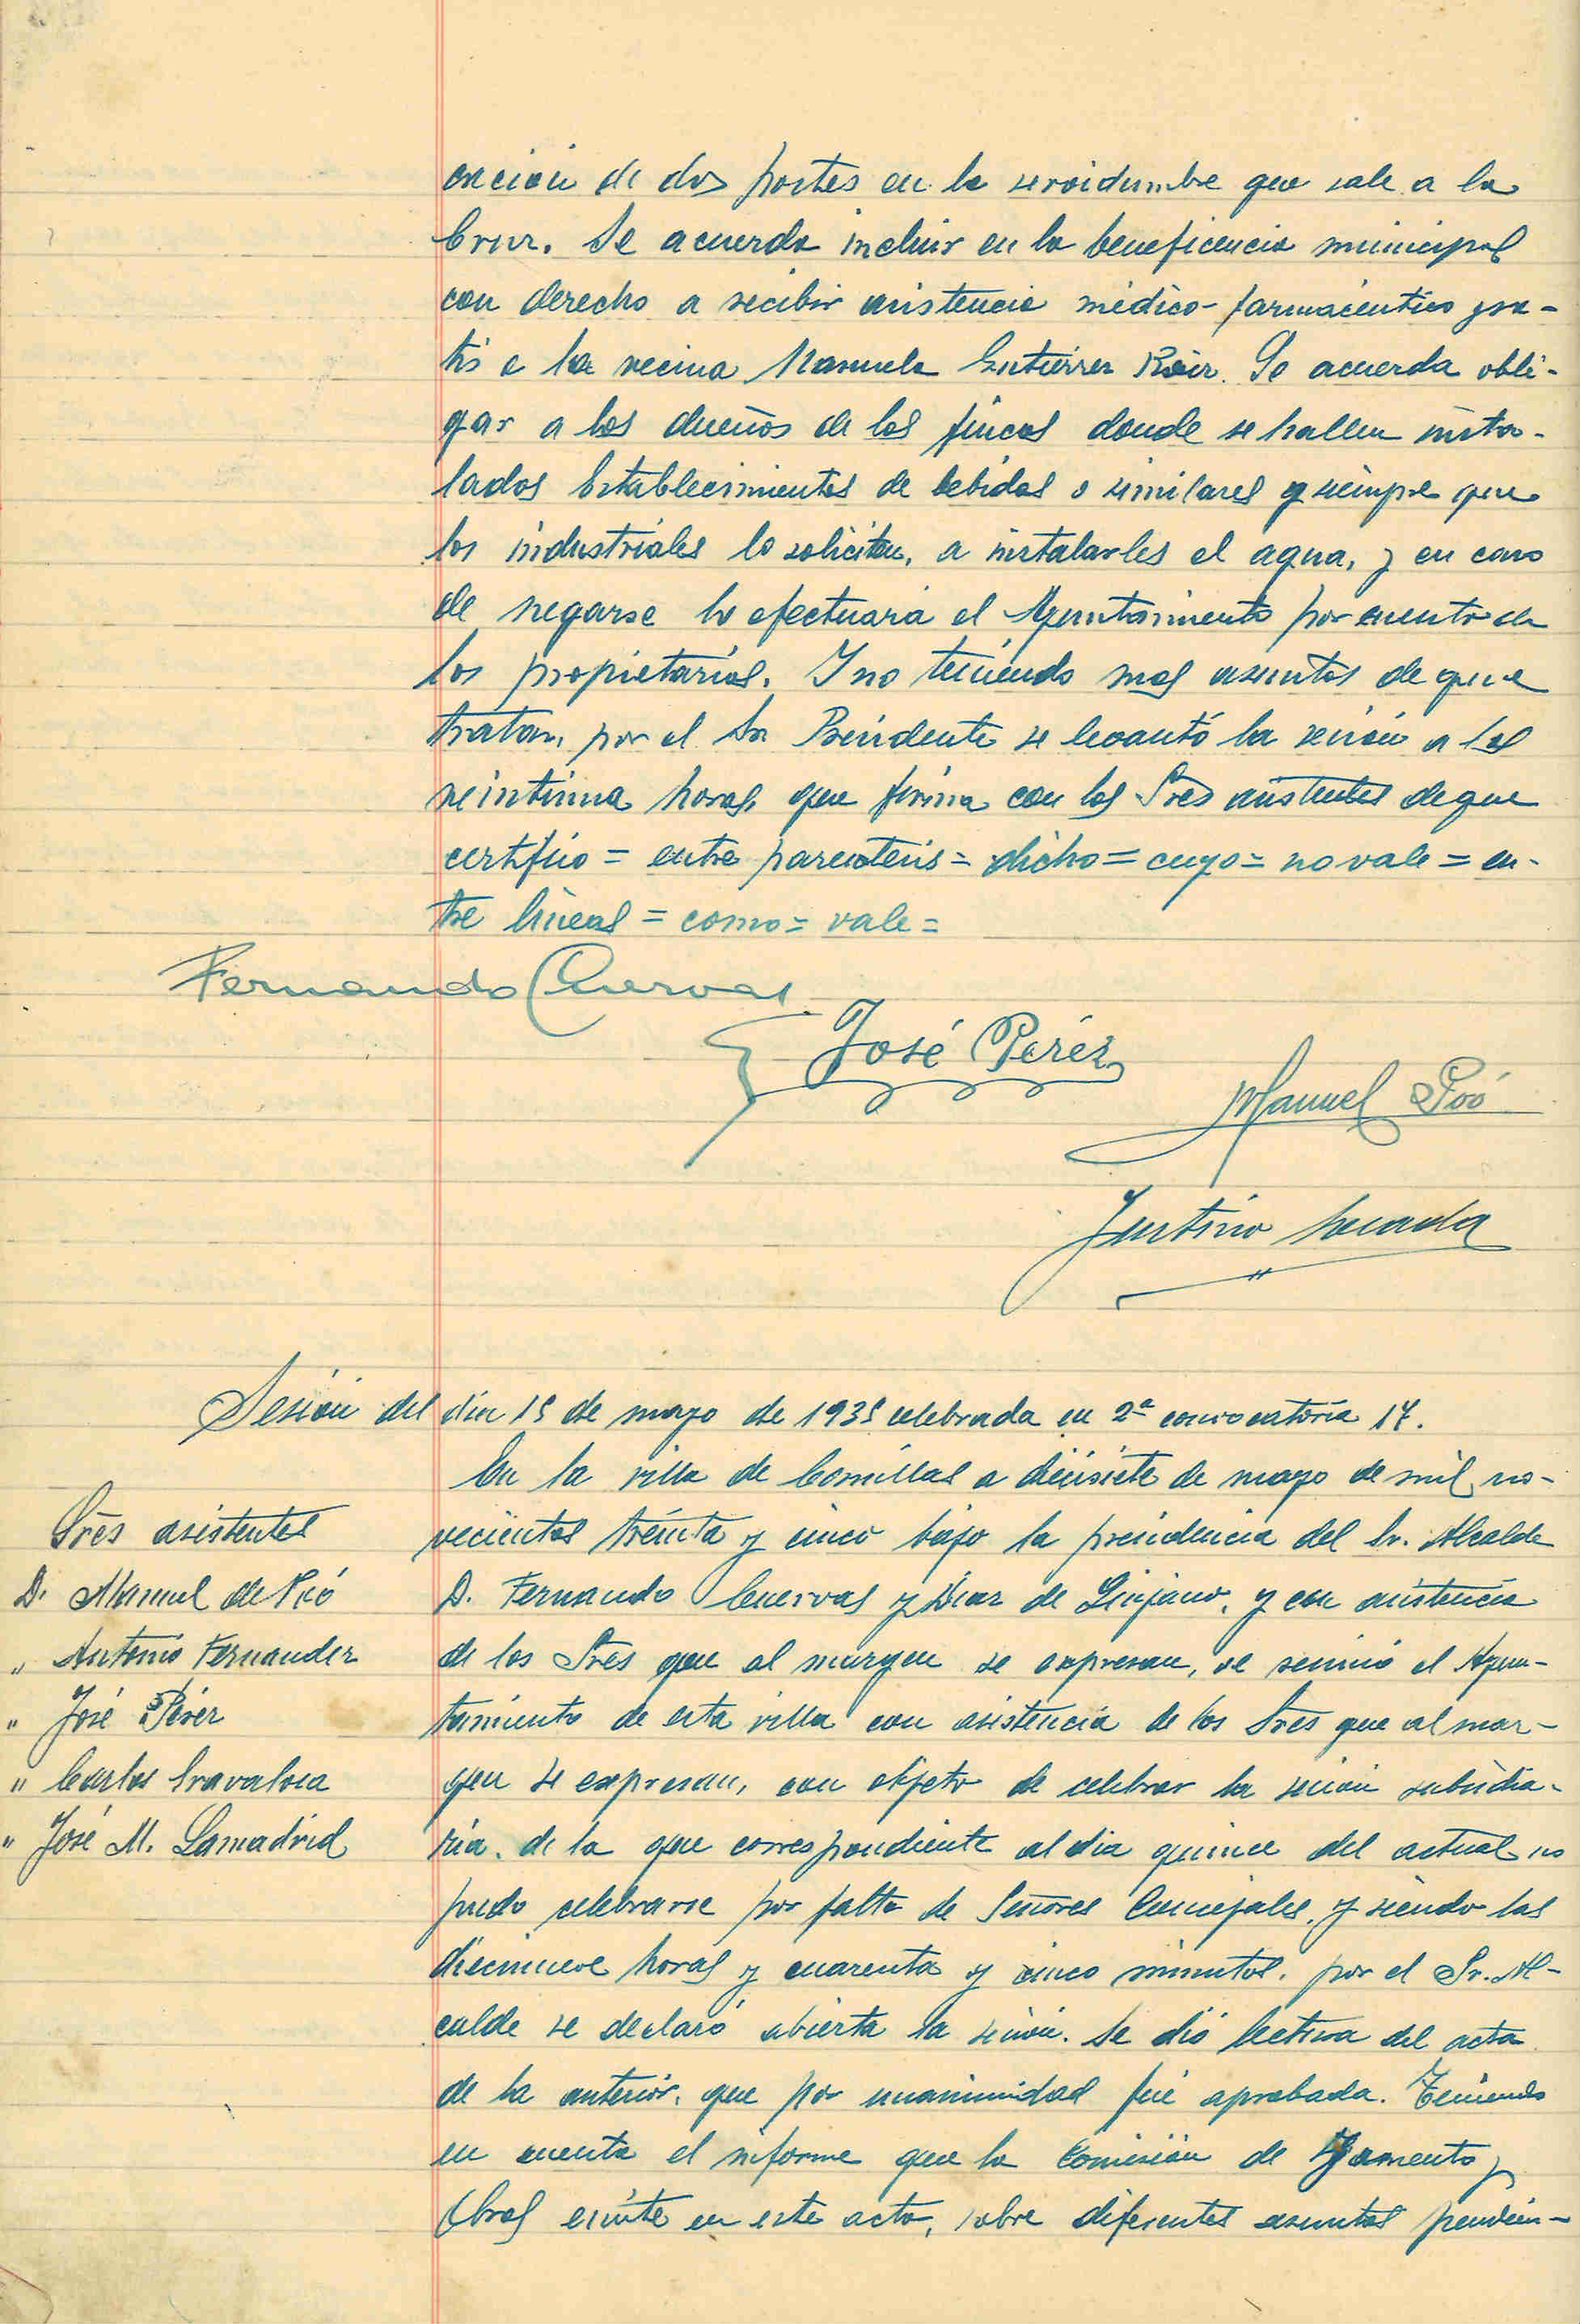 de dos postes en la servidumbre que sale a la
Cruz. Se acuerda incluir en la beneficencia municipal
con derecho a recibir asistencia médico-farmacéutico gra-
tis a la vecina Manuela Gutiérrez Ruiz. Se acuerda obli-
gar a los dueños de las fincas donde se hallen insta-
lados Establecimientos de bebidas o similares y siempre que
los industriales lo soliciten, a instalarles el agua, y en caso
de negarse lo efectuará el Ayuntamiento por cuenta de
los propietarios. Y no teniendo mas asuntos de que
tratar, por el Sr. Presidente se levantó la sesión a las
veintiuna horas, que firma con los Sres asistentes de que
certifico = entre parentesis = dicho = cuyo = no vale = en-
tre lineas = como = vale =
Fernando Cuervas
José Pérez
Manuel Poó
Justino
Sesión del día 15 de mayo de 1935 celebrada en 2ª convocatoria 17.
En la villa de Comillas a diecisiete de mayo de mil no-
Sres asistentes
vecientos treinta y cinco bajo la presidencia del Sr. Alcalde
D. Manuel de Poó
D. Fernando Cuervas y Díaz de Quijano, y con asistencia
" Antonio Fernandez
de los Sres que al margen se expresan, se reunió el Ayun-
" José Pérez
tamiento de esta villa con asistencia de los Sres que al mar-
" Carlos
gen se expresan, con objeto de celebrar la sesión subsidia-
" José M. Lamadrid
ria, de la que correspondiente al dia quince del actual no
pudo celebrarse por falta de Señores Concejales, y siendo las
diecinueve horas y cuarenta y cinco minutos, por el Sr. Al-
calde se declaró abierta la sesión. Se dió lectura del acta
de la anterior, que por unanimidad fué aprobada. Teniendo
en cuenta el informe que la Comisión de Fomento y
Obras emite en este acto, sobre diferentes asuntos pendien-